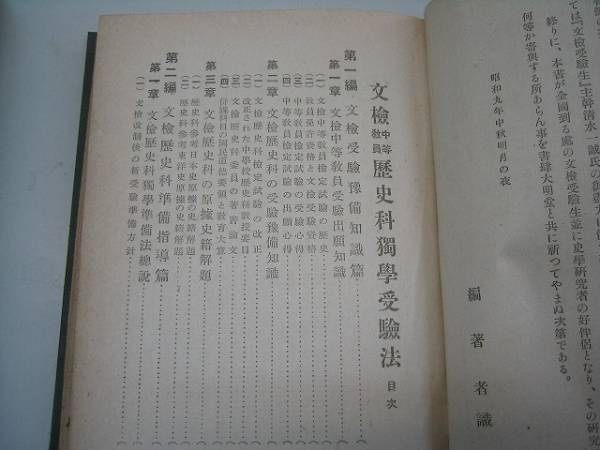 ては『文檢受驗生』主幹淸水一誠氏の
終りに、本書が全國到る處の文檢受驗生並に史學研究者の好伴侶となり、その研究
何等か寄與する所あらん事を書肆大明堂と共に祈つてやまぬ次第である。
昭和九年中秋明月の夜
編著者識
文檢中等敎員歷史科獨學受驗法 目次
第一編 文檢受驗豫備知識篇
第一章 文檢中等敎員受驗出願知識
(一) 文檢中等敎員檢定試驗の歷史
(二) 敎員免許資格と文檢受驗資格
(三) 中等敎員檢定試驗の受驗心得
(四) 中等敎員檢定試驗の出願心得
第二章 文檢歷史科の受驗豫備知識
(一) 文檢歷史科檢定試驗の改正
(二) 改正された中學校歷史科敎授要目
(三) 文檢歷史科委員の著書論文
(四) 併備科目の國民道德要領と敎育大意
第三章 文檢歷史科の原據史籍解題
(一) 歷史科參考日本史原據の史籍解題
(二) 歷史科參考東洋史原據の史籍解題
第二編 文檢歷史科準備指導篇
第一章 文檢歷史科獨學準備法總說
(一) 文檢改制後の新受驗準備方針